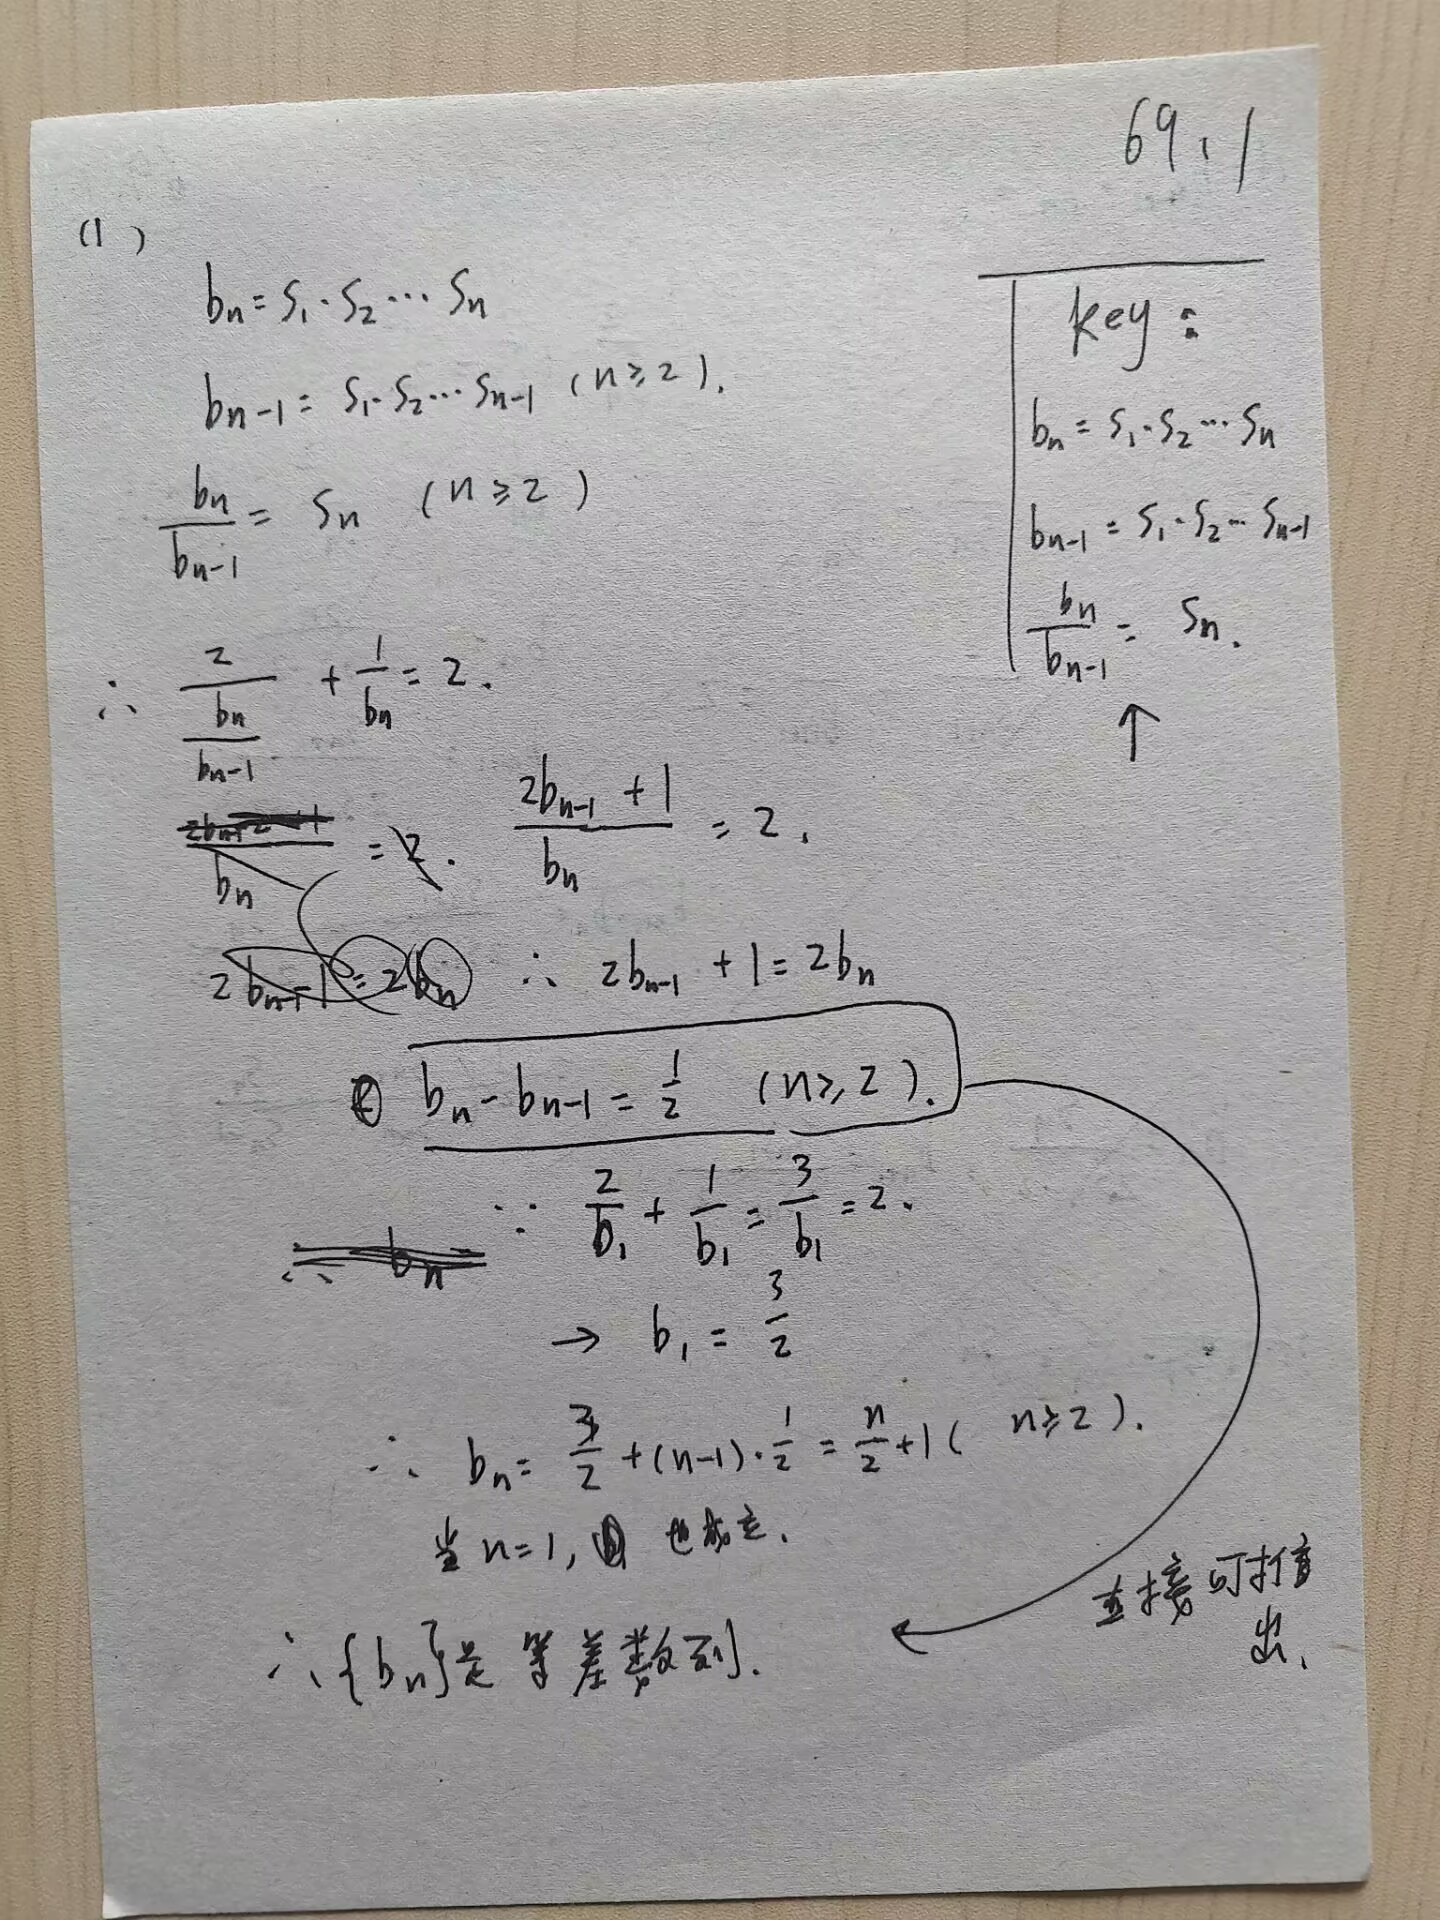 69.1
(1)
bn = S₁·S₂···Sn
bn-1 = S₁·S₂···Sn-1 (n≥2).
bn/bn-1 = Sn (n≥2)
∴ 2/(bn/bn-1) + 1/bn = 2.
(2bn-1 + 1)/bn = 2.
∴ 2bn-1 + 1 = 2bn
bn - bn-1 = 1/2 (n≥2).
∵ 2/b₁ + 1/b₁ = 3/b₁ = 2.
→ b₁ = 3/2
∴ bn = 3/2 + (n-1)·1/2 = n/2 + 1 (n≥2).
当 n=1, 也成立.
∴{bn}是等差数列.
直接可推
出.
key:
bn = S₁·S₂···Sn
bn-1 = S₁·S₂···Sn-1
bn/bn-1 = Sn.
↑